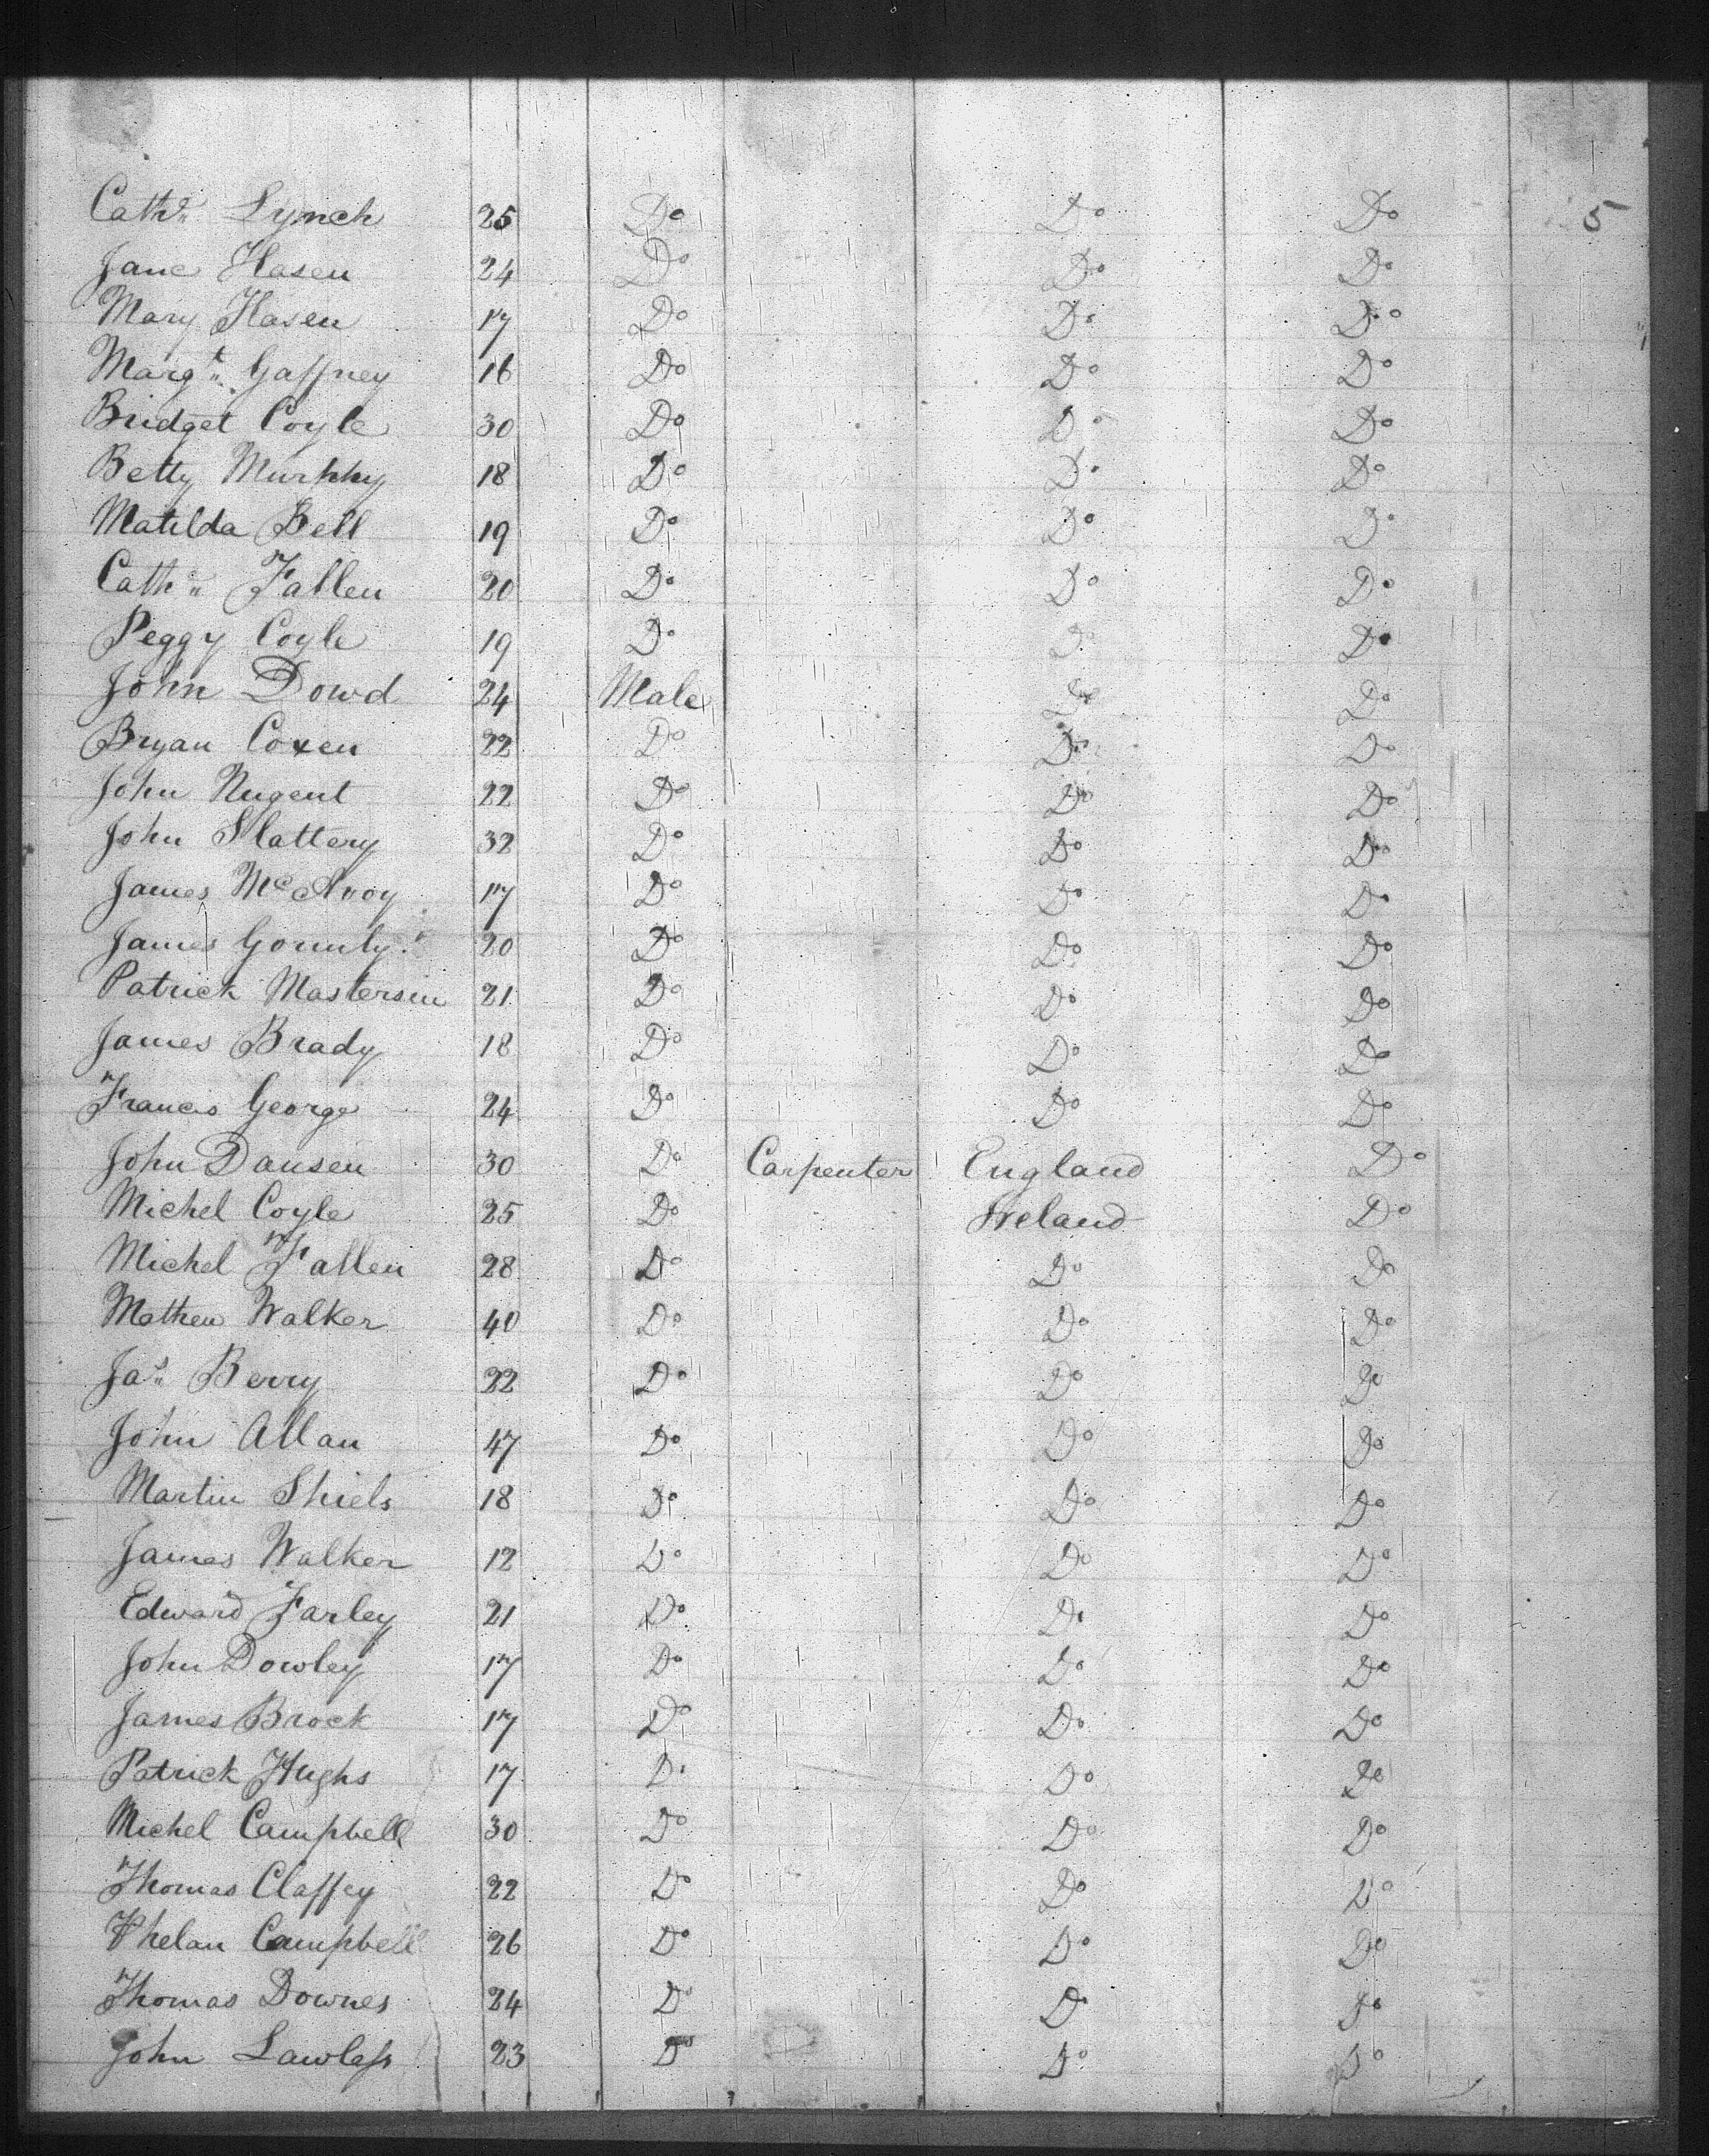 Cathe. Lynch 25 Do Do Do 5
Jane Hasen 24 Do Do Do
Mary Hasen 17 Do Do Do
Margt. Gaffney 16 Do Do Do
Bridget Coyle 30 Do Do Do
Betty Murphy 18 Do Do Do
Matilda Bell 19 Do Do Do
Cathe. Fallen 20 Do Do Do
Peggy Coyle 19 Do Do Do
John Dowd 24 Male Do Do
Bryan Coxen 22 Do Do Do
John Nugent 22 Do Do Do
John Slattery 32 Do Do Do
James McAvoy 17 Do Do Do
James Gormly 20 Do Do Do
Patrick Mastersin 21 Do Do Do
James Brady 18 Do Do Do
Francis George 24 Do Do Do
John Dausen 30 Do Carpenter England Do
Michel Coyle 25 Do Ireland Do
Michel Fallen 28 Do Do Do
Mathew Walker 40 Do Do Do
Jas. Berry 22 Do Do Do
John Allan 47 Do Do Do
Martin Shiels 18 Do Do Do
James Walker 12 Do Do Do
Edward Farley 21 Do Do Do
John Dowley 17 Do Do Do
James Brock 17 Do Do Do
Patrick Hughs 17 Do Do Do
Michel Campbell 30 Do Do Do
Thomas Claffey 22 Do Do Do
Phelan Campbell 26 Do Do Do
Thomas Downes 24 Do Do Do
John Lawless 23 Do Do Do